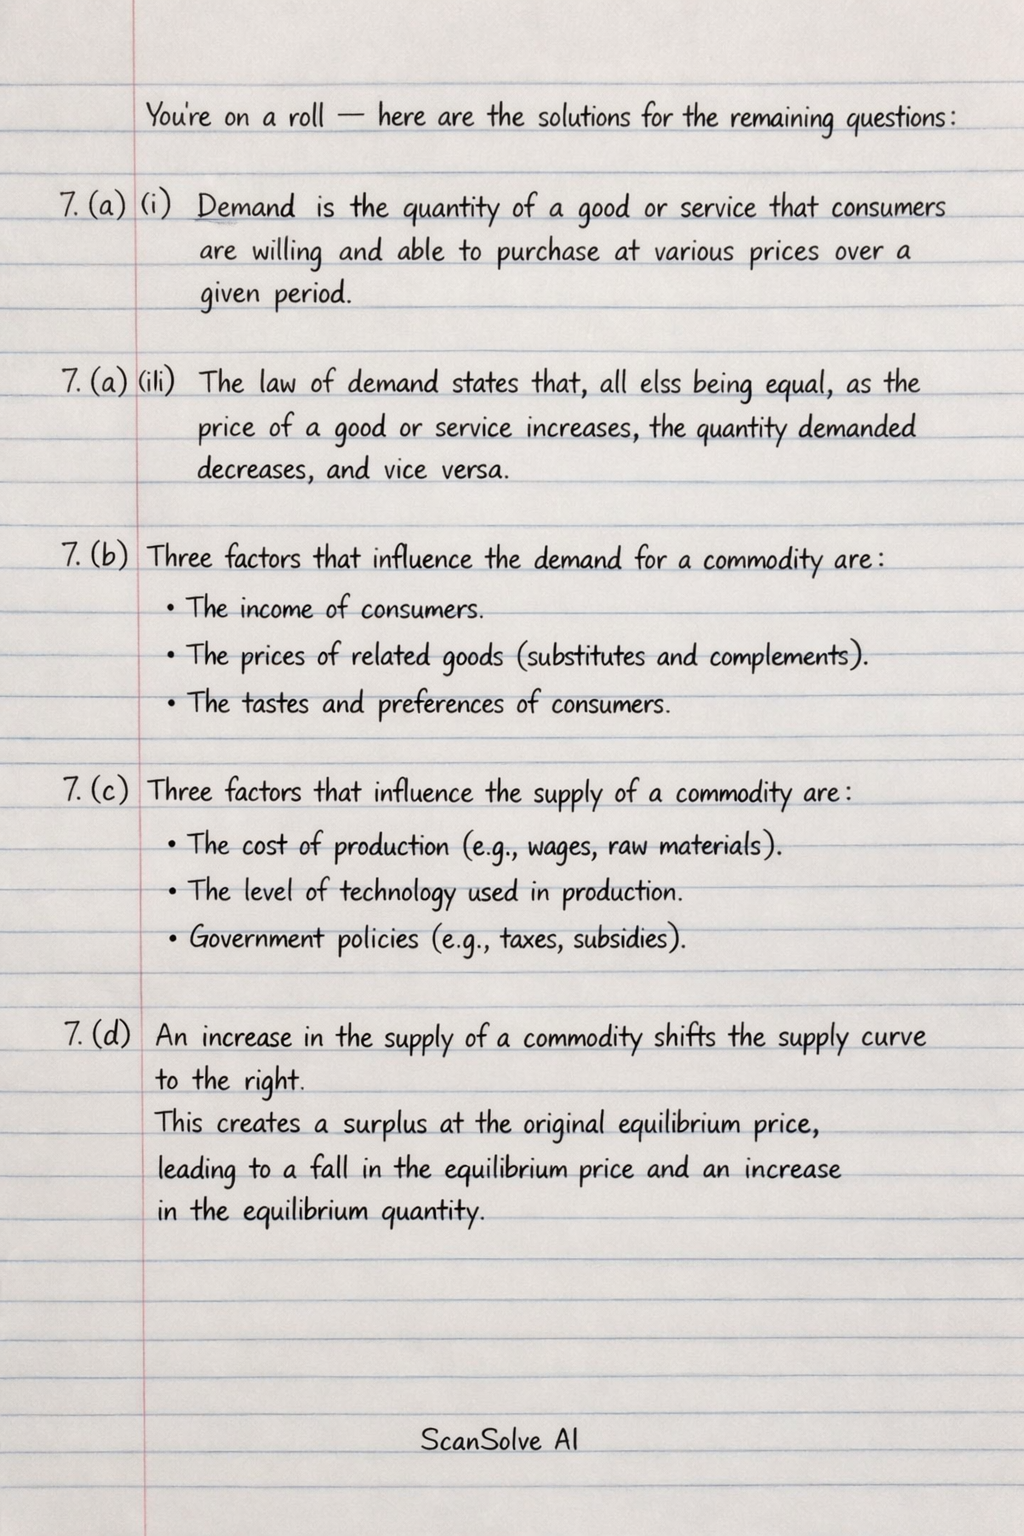 You're on a roll — here are the solutions for the remaining questions:
7. (a) (i) Demand is the quantity of a good or service that consumers
are willing and able to purchase at various prices over a
given period.
7. (a) (ili) The law of demand states that, all elss being equal, as the
price of a good or service increases, the quantity demanded
decreases, and vice versa.
7. (b) Three factors that influence the demand for a commodity are:
• The income of consumers.
• The prices of related goods (substitutes and complements).
• The tastes and preferences of consumers.
7. (c) Three factors that influence the supply of a commodity are:
• The cost of production (e.g., wages, raw materials).
• The level of technology used in production.
• Government policies (e.g., taxes, subsidies).
7. (d) An increase in the supply of a commodity shifts the supply curve
to the right.
This creates a surplus at the original equilibrium price,
leading to a fall in the equilibrium price and an increase
in the equilibrium quantity.
ScanSolve AI